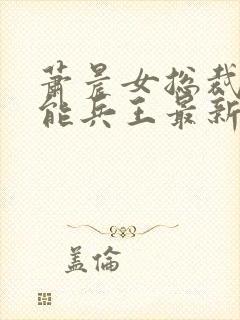 萧晨女总裁
能兵王最新
盖伦